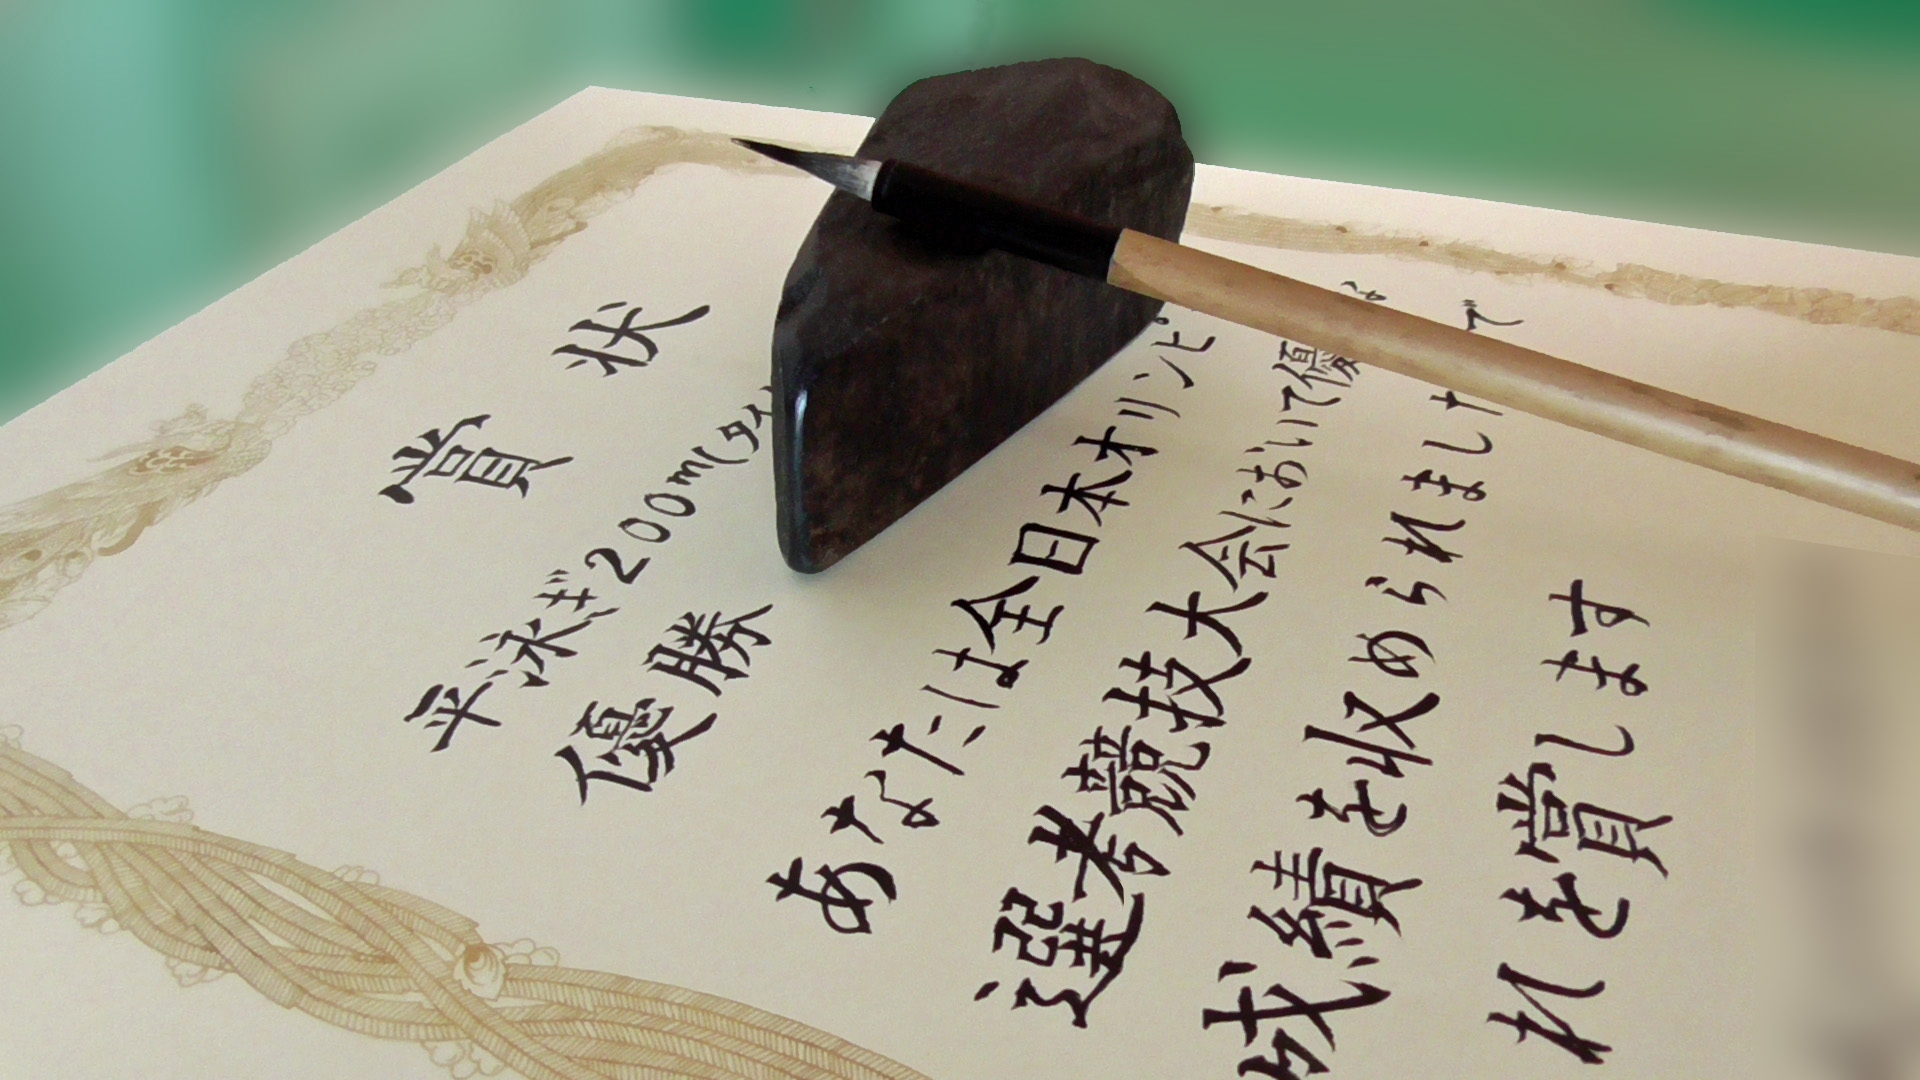 賞状
平泳ぎ200m(タイ
優勝
あなたは全日本オリンピ
選考競技大会において優 な
成績を収められました で
れを賞します